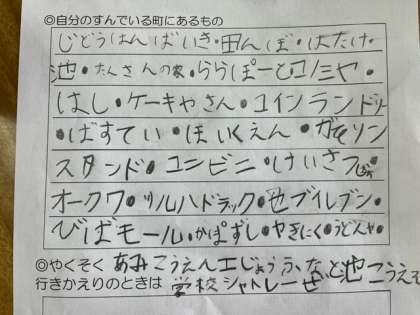 ◎自分のすんでいる町にあるもの
じどうはんばいき・田んぼ・はたけ・
池・たくさんの家・ららぽーと
はし・ケーキやさん・コインランドリー
・ばすてい・ほいくえん・ガソリン
スタンド・コンビニ・けいさつ
オークワ・ツルハドラック・セブイレブン・
びばモール・かっぱずし・やきにく・うどんや・
◎やくそく あみこうえん工じょうふなと池こうえん
行きかえりのときは 学校シャトレーぜ